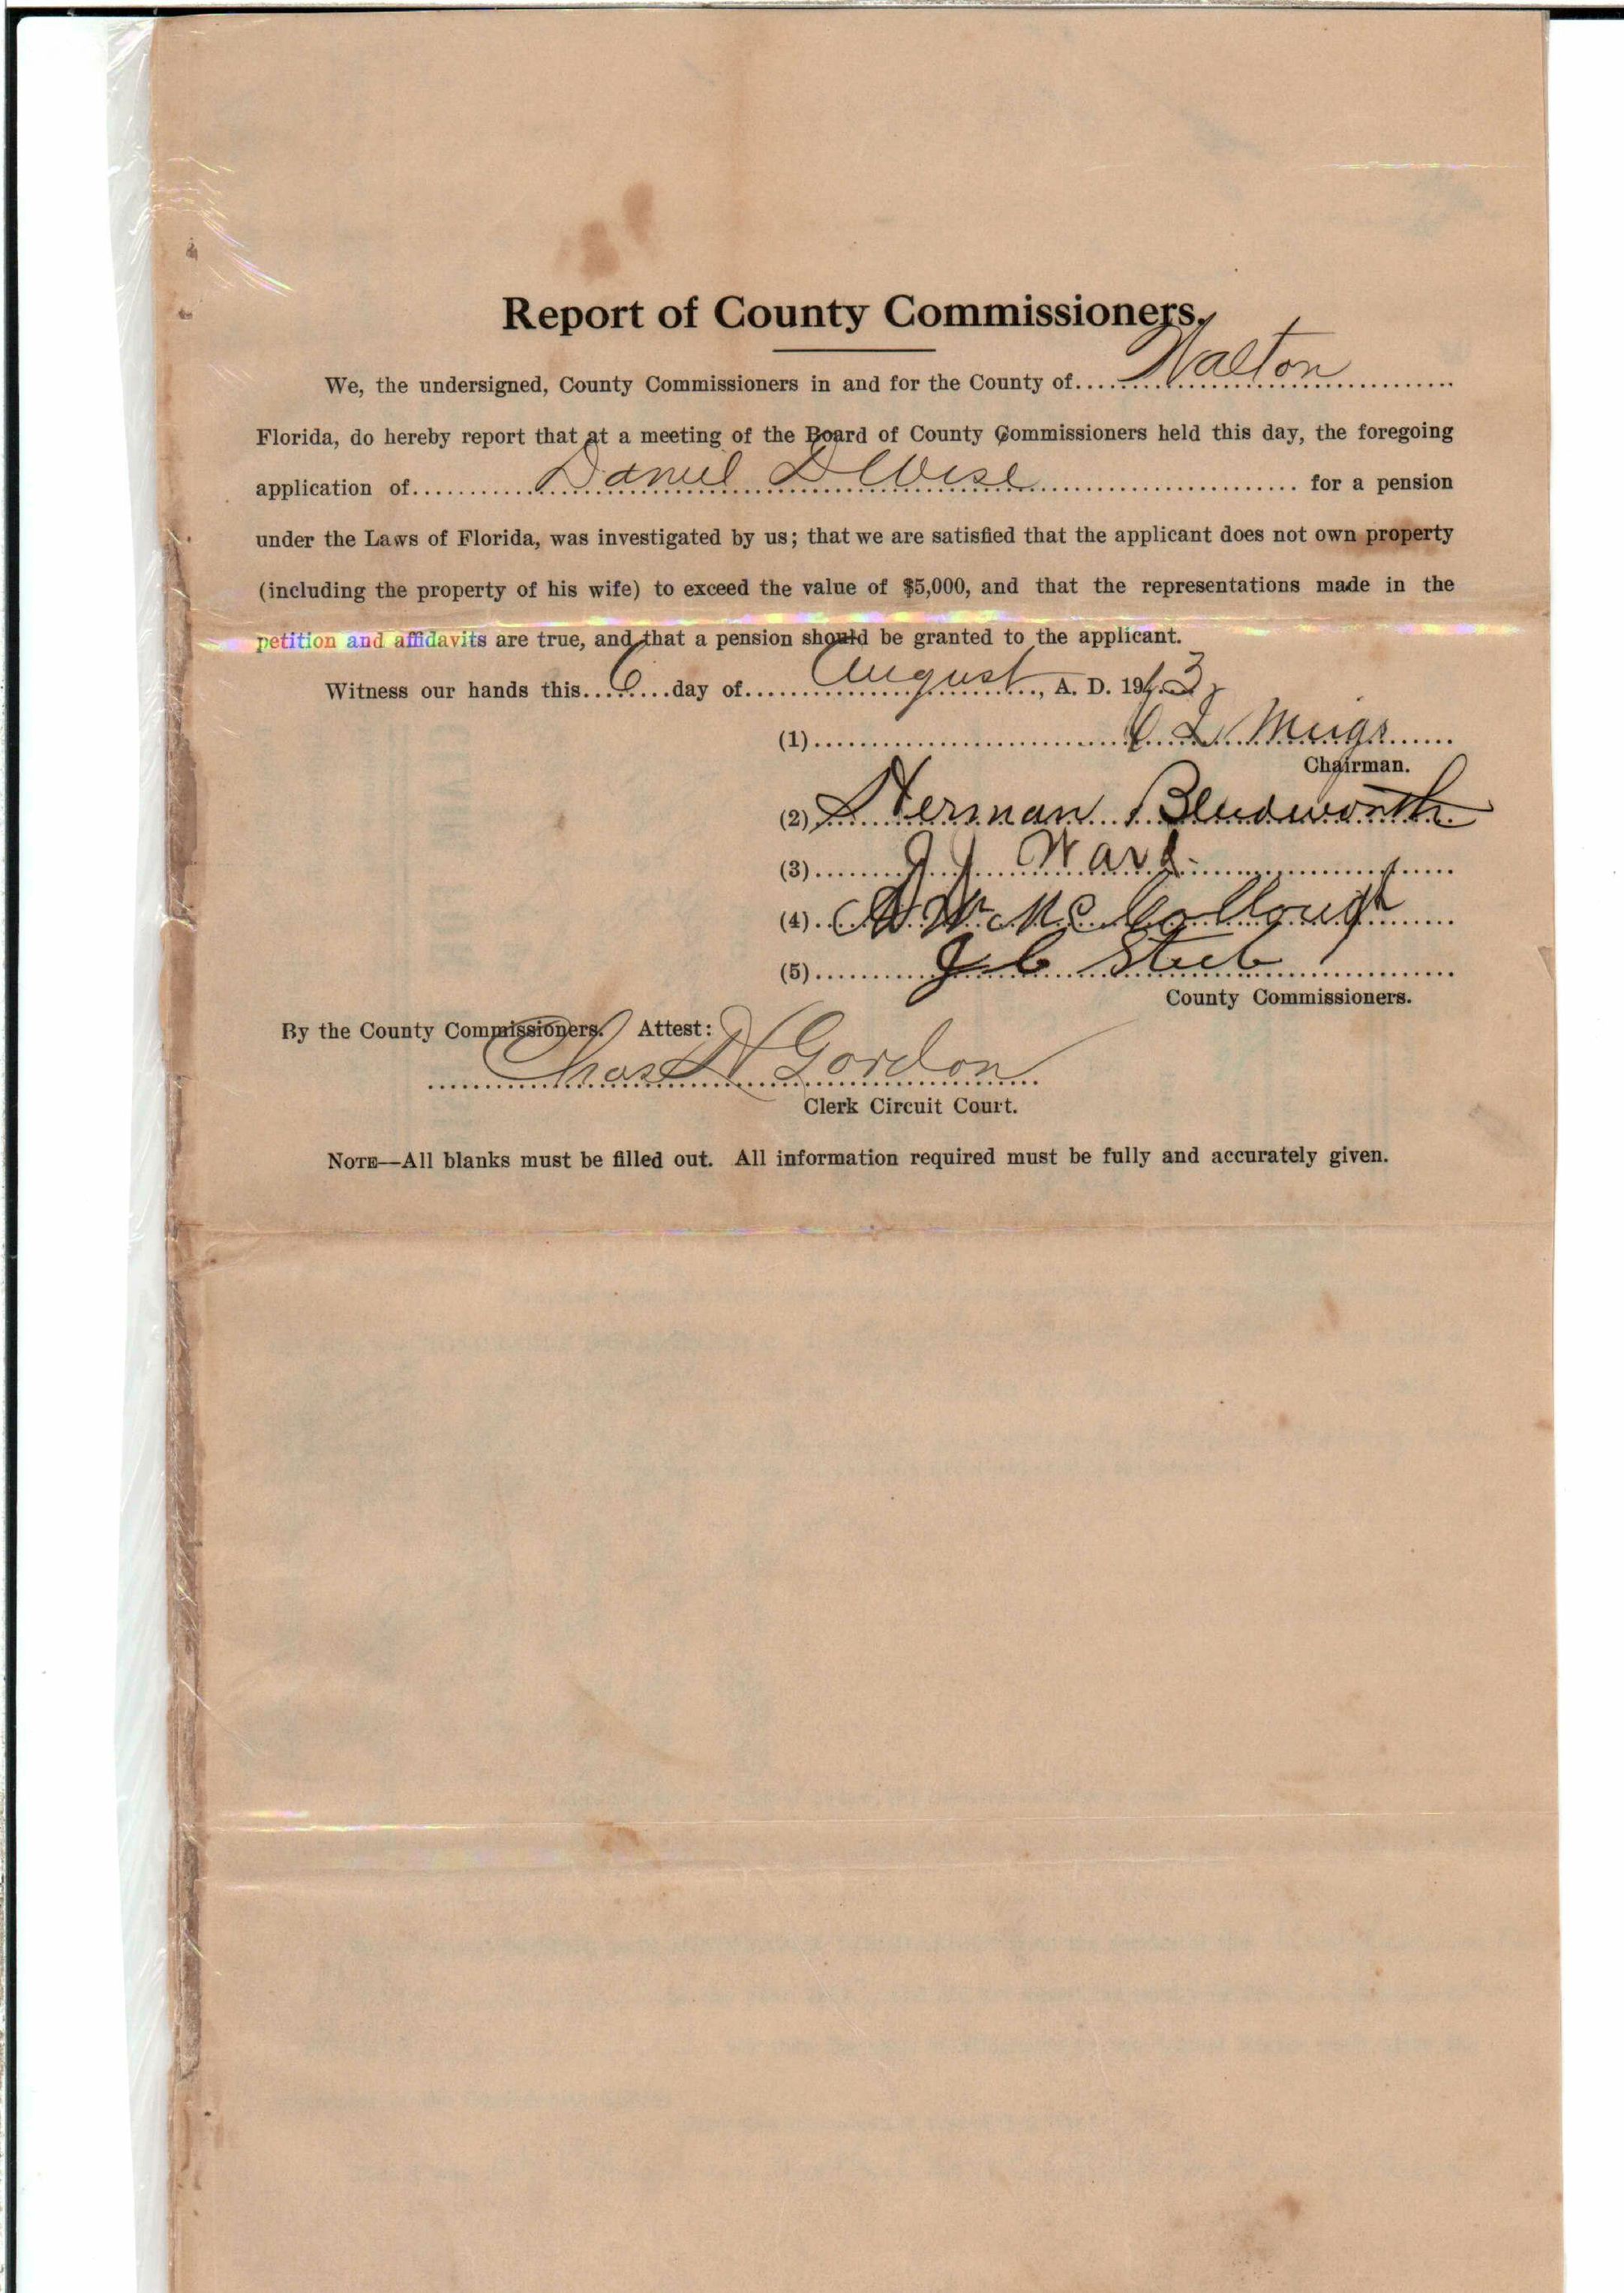 Report of County Commissioners.
We, the undersigned, County Commissioners in and for the County of Walton
Florida, do hereby report that at a meeting of the Board of County Commissioners held this day, the foregoing
application of Daniel D Wise for a pension
under the Laws of Florida, was investigated by us; that we are satisfied that the applicant does not own property
(including the property of his wife) to exceed the value of $5,000, and that the representations made in the
petition and affidavits are true, and that a pension should be granted to the applicant.
Witness our hands this 6 day of August, A. D. 1913
(1) Meigs
Chairman.
(2) Herman Bludworth
(3) J J Ward
(4) McCollough
(5) J C Steele
County Commissioners.
By the County Commissioners. Attest:
Chas H Gordon
Clerk Circuit Court.
NOTE—All blanks must be filled out. All information required must be fully and accurately given.